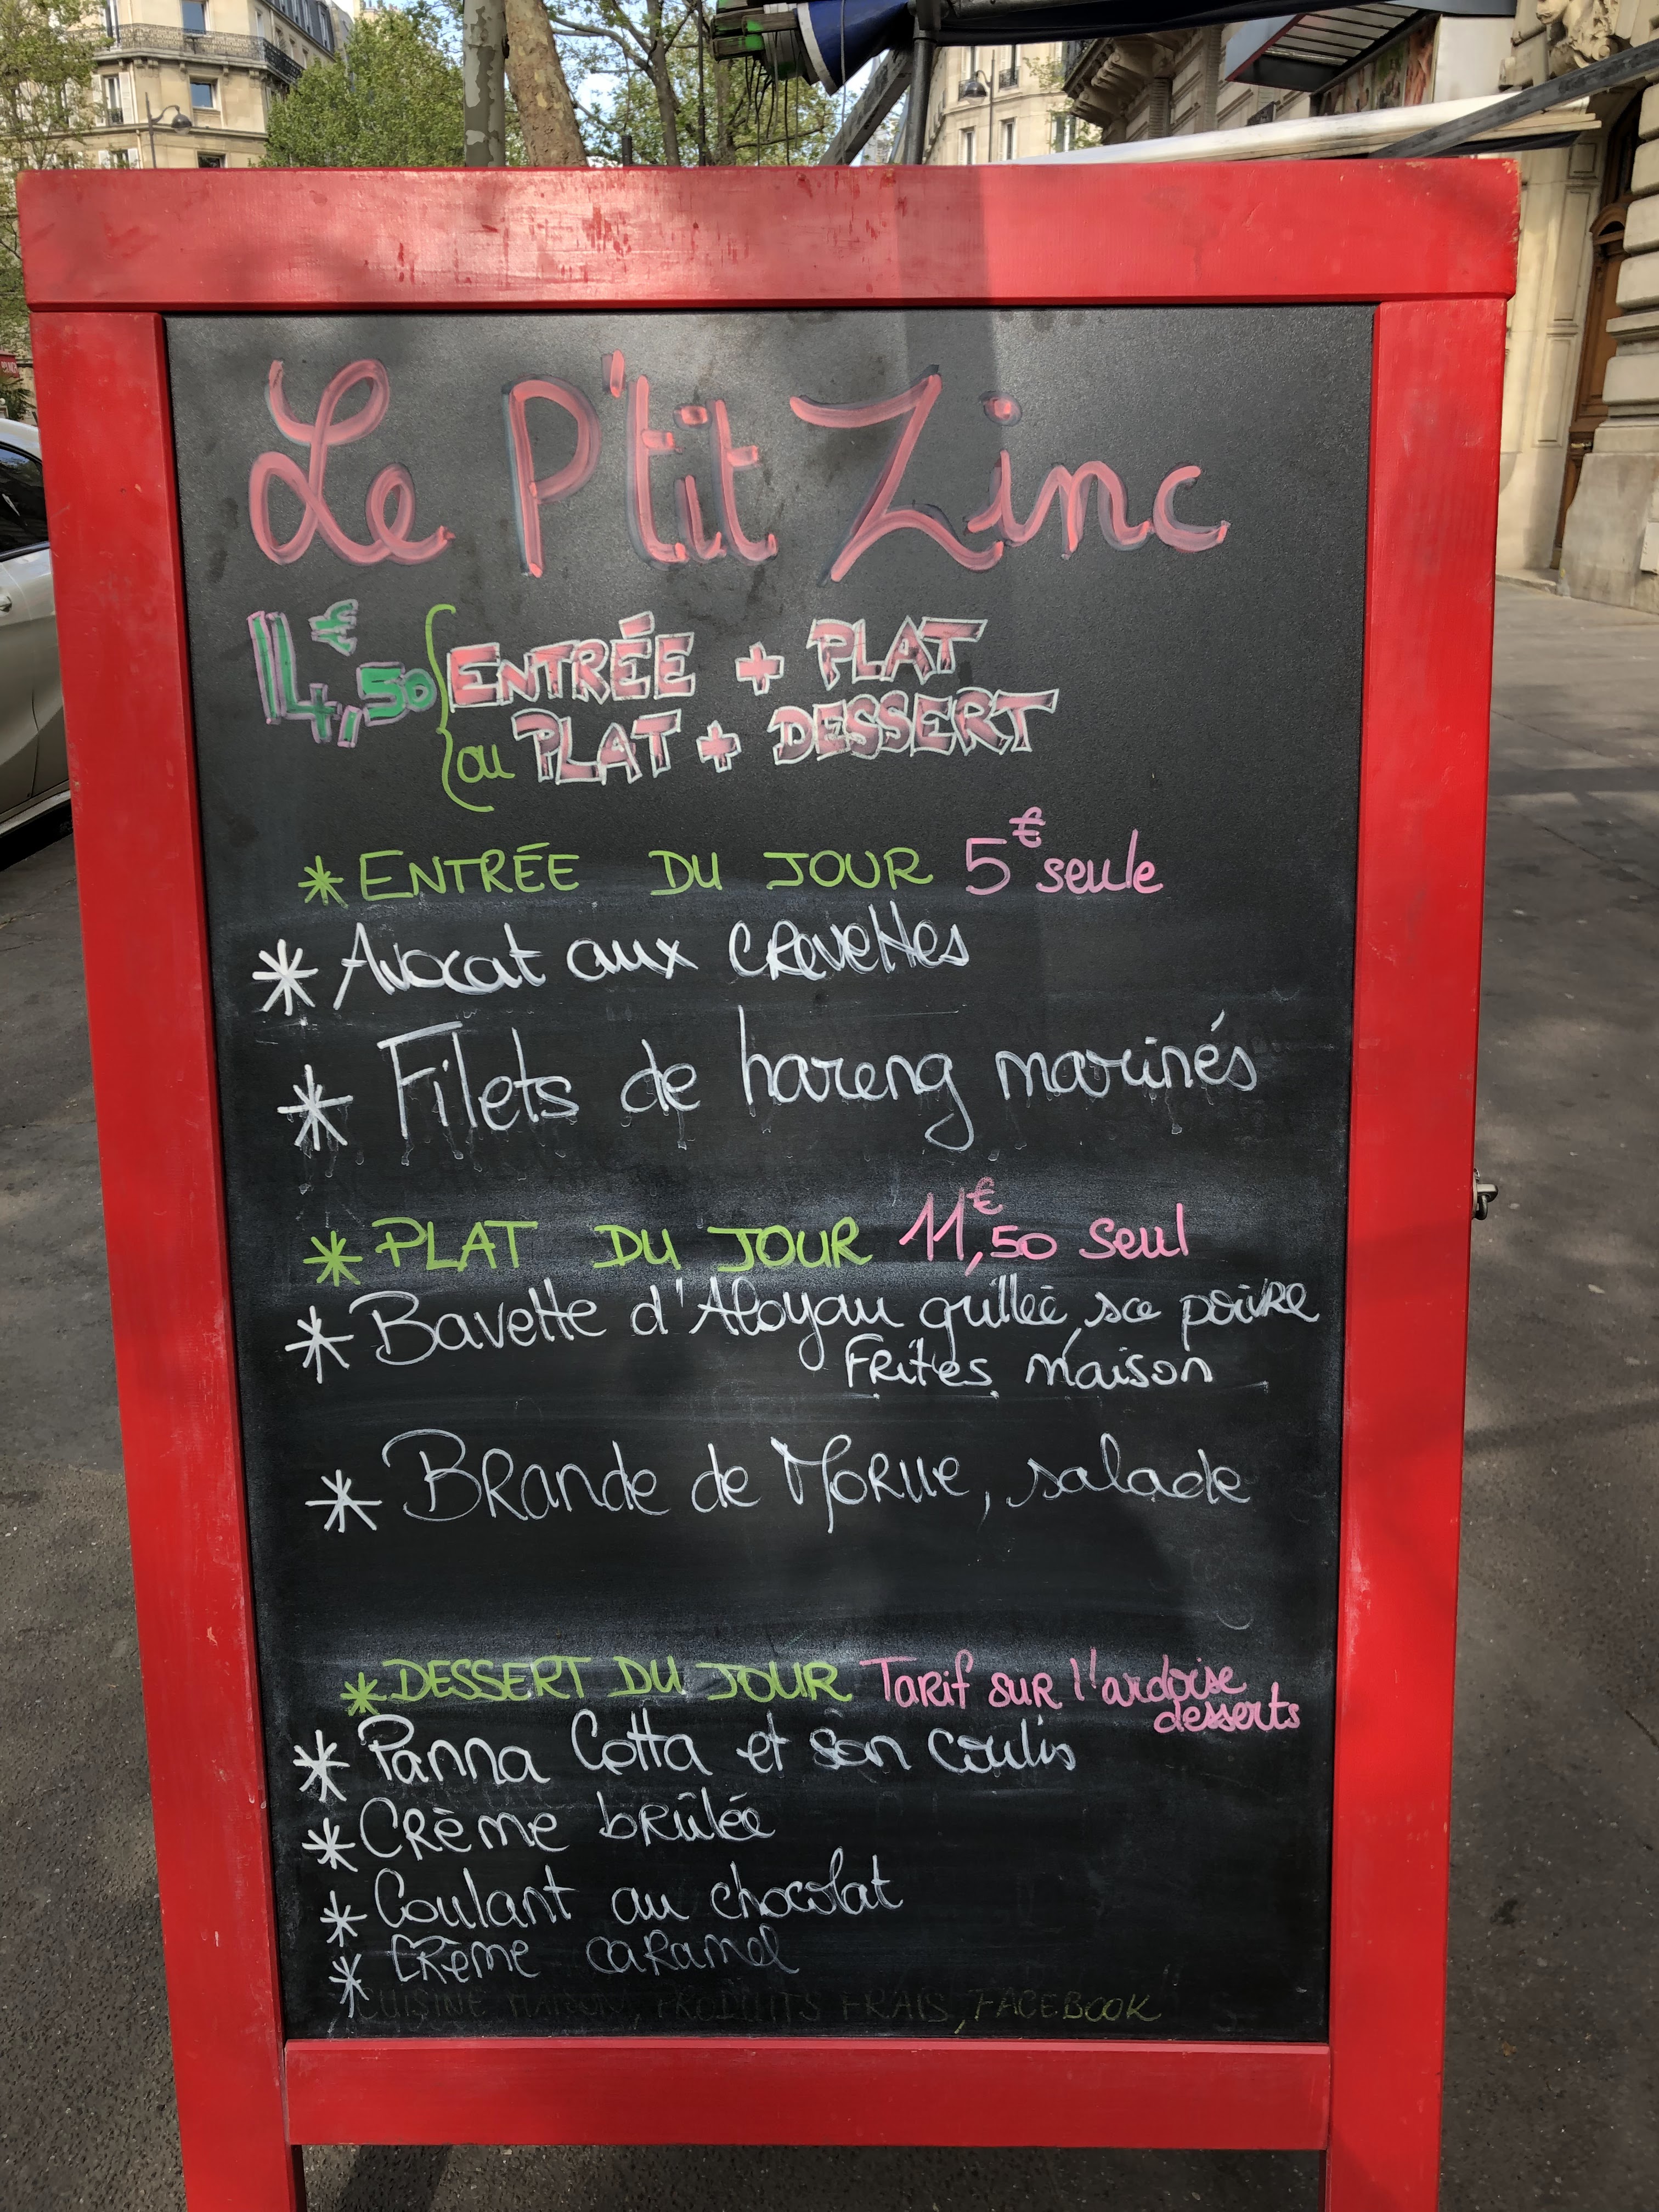 Le P'tit Zinc
14€,50 { ENTRÉE + PLAT
ou PLAT + DESSERT
* ENTRÉE DU JOUR 5€ seule
* Avocat aux crevettes
* Filets de hareng marinés
* PLAT DU JOUR 11€,50 seul
* Bavette d'Aloyau grillée, sce poivre
Frites Maison
* Brande de Morue, salade
* DESSERT DU JOUR Tarif sur l'ardoise
desserts
* Panna Cotta et son coulis
* Crème brûlée
* Coulant au chocolat
* Crème caramel
CUISINE MAISON, PRODUITS FRAIS, FACEBOOK